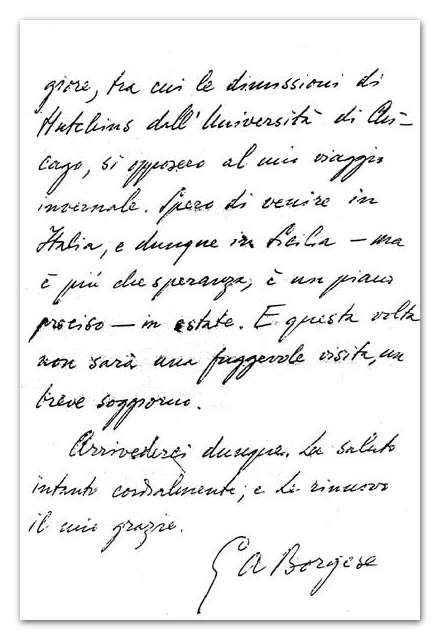 giore, tra cui le dimissioni di
Hutchins dall'Università di Chi-
cago, si opposero al mio viaggio
invernale. Spero di venire in
Italia, e dunque in Sicilia — ma
è più che speranza, è un piano
preciso — in estate. E questa volta
non sarà una fuggevole visita, un
breve soggiorno.
Arrivederci dunque. La saluto
intanto cordialmente; e Le rinnovo
il mio grazie.
G A Borgese